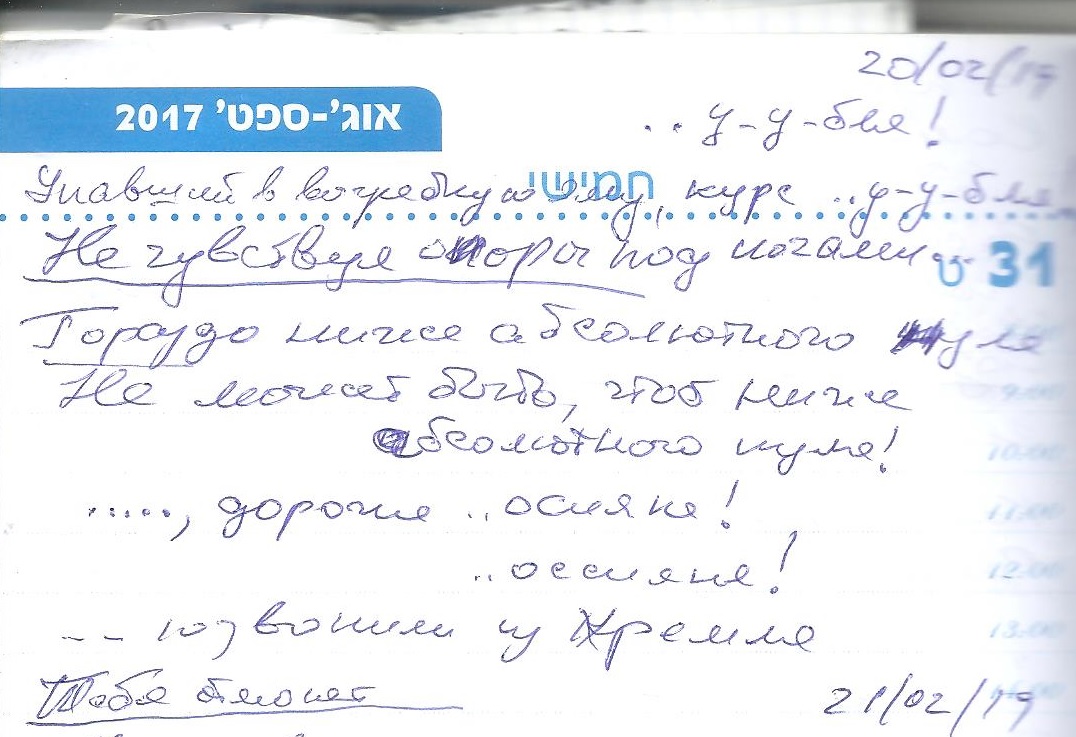 20/02/19
אוג'-ספט' 2017
..у-у-бля!
חמישי
Упавший в выгребную яму, курс ..у-у-бля
Не чувствуя опоры под ногами
31
Гораздо ниже абсолютного нуля
Не может быть, чтоб ниже
абсолютного нуля!
....., дорогие ..осияне!
..оссияне!
-- позвонили из Кремля
Тебя
21/02/19